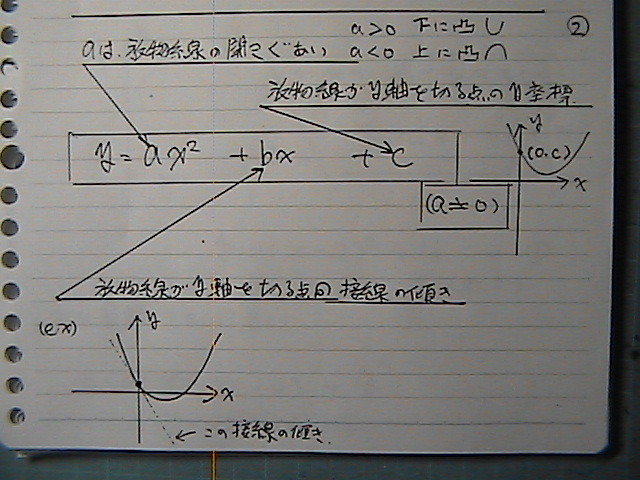 a>0 下に凸∪
②
aは、放物線の開きぐあい a<0 上に凸∩
放物線がy軸を切る点のy座標
y=ax²+bx+c
y
(0,c)
x
(a≠0)
放物線がy軸を切る点の接線の傾き
(ex)
y
x
←この接線の傾き